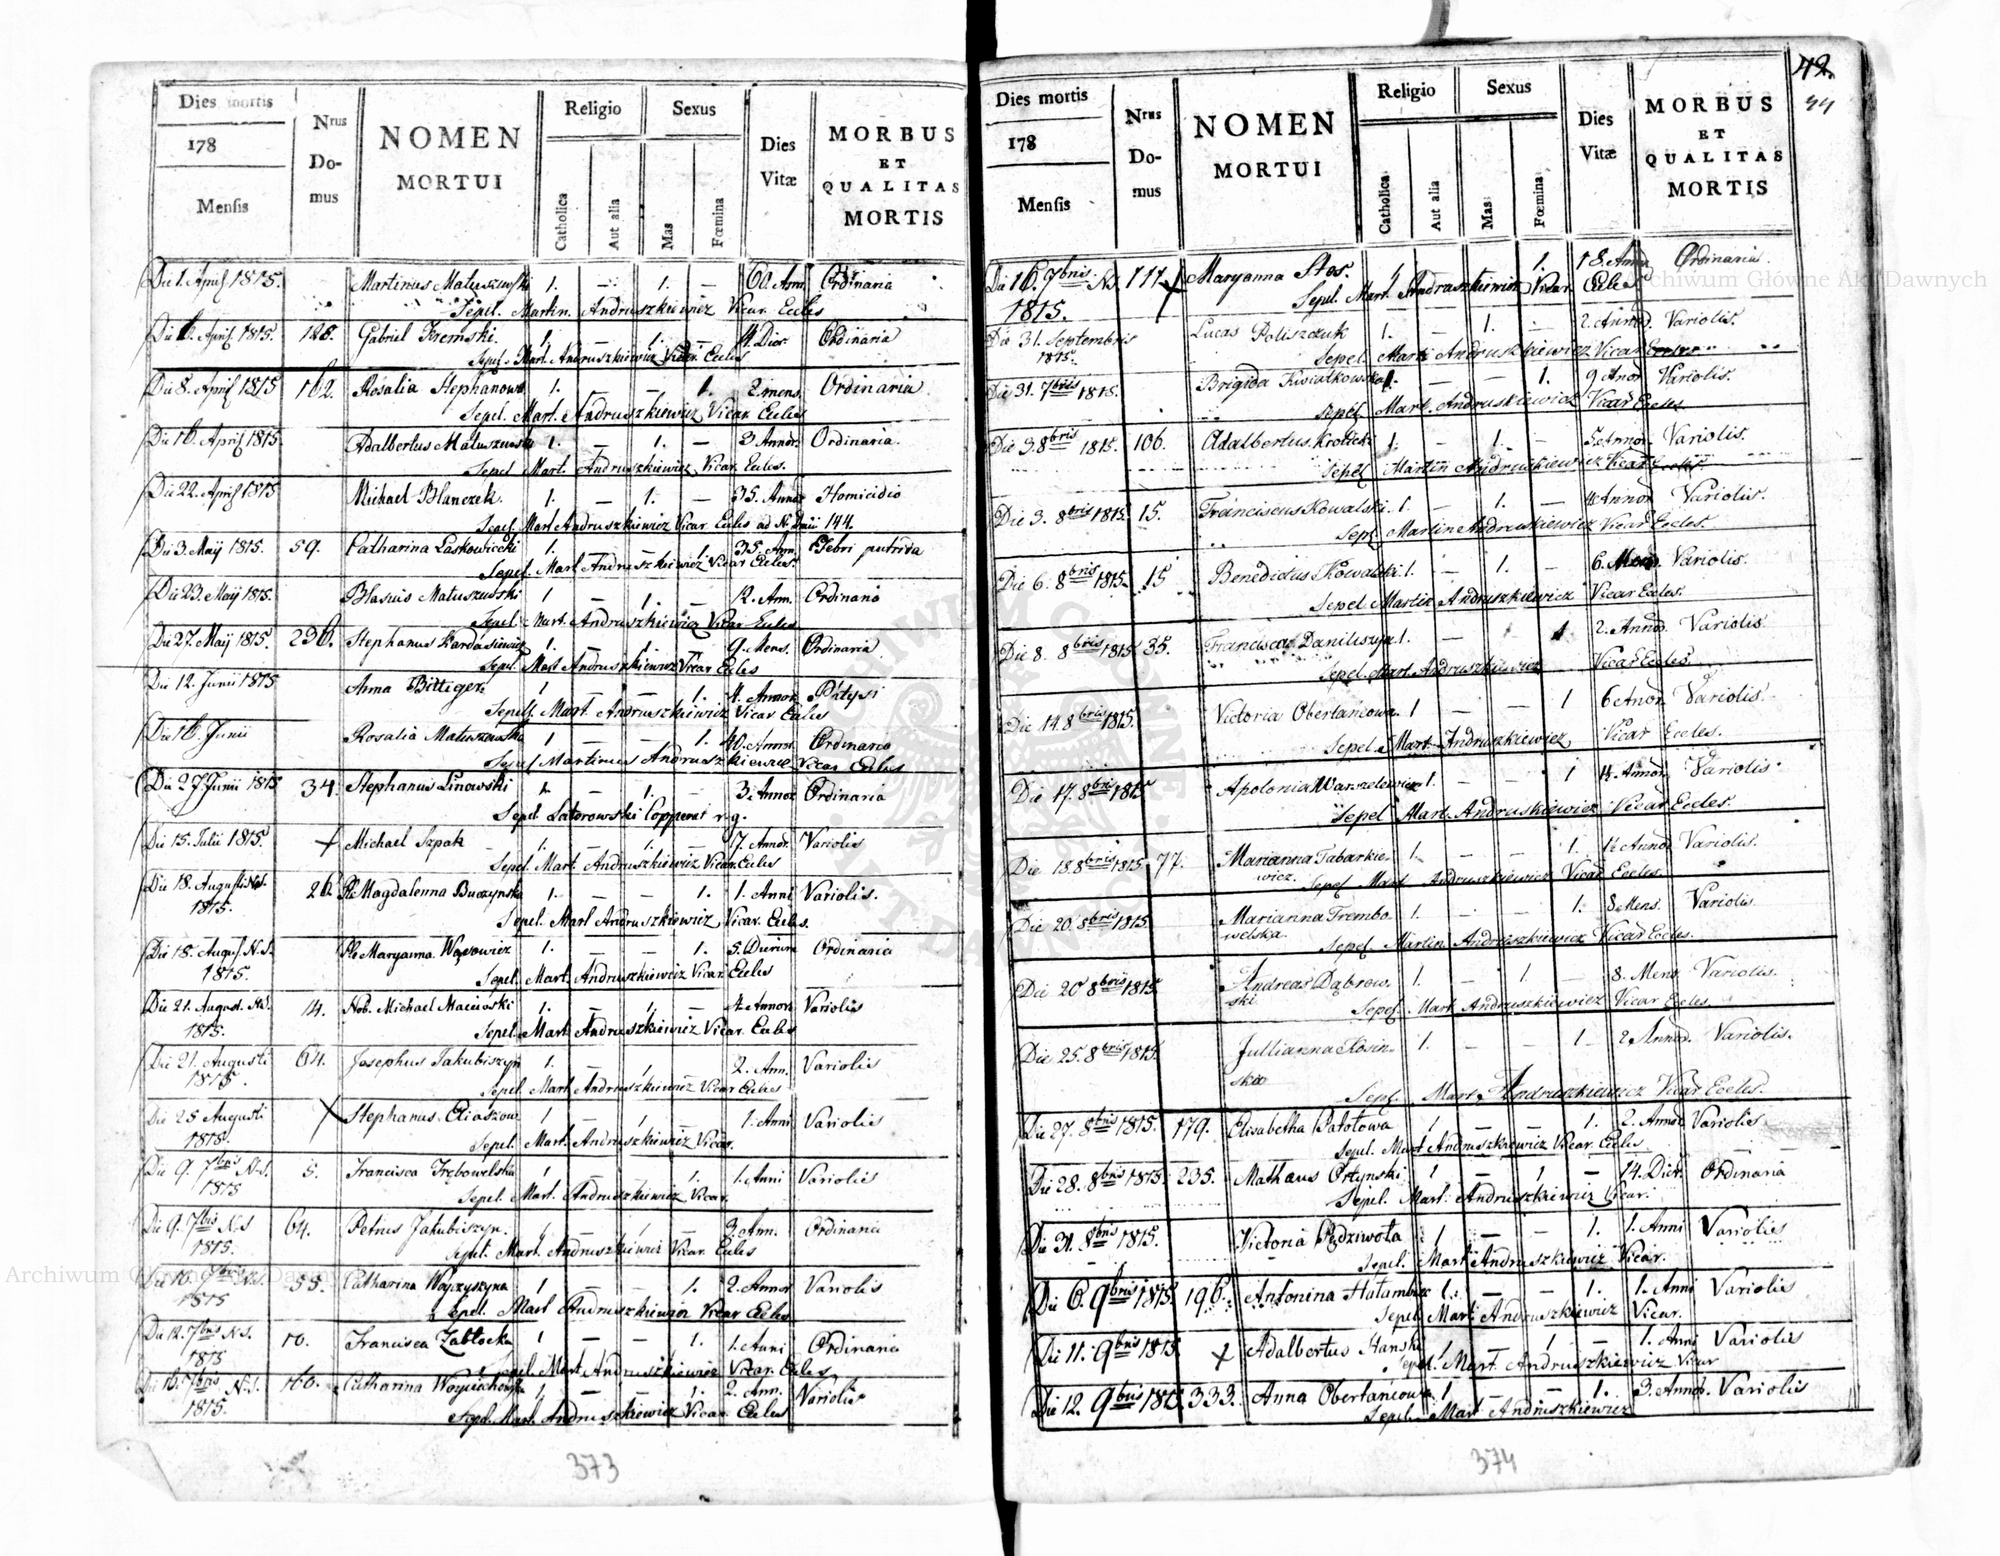 Dies mortis
178
Mensis
Nrus Domus
NOMEN
MORTUI
Religio
Catholica
Aut alia
Sexus
Mas
Fœmina
Dies Vitæ
MORBUS
ET
QUALITAS
MORTIS
Die 1. April 1815. Martinus Matuszewski 1. — 1. — 60. Ann. Ordinaria
Sepel. Martin. Andruszkiewicz Vicar. Eccles
April. 1815. 126. Gabriel 1. — 1. — Dier. Ordinaria
Sepel. Mart. Andruszkiewicz Vicar. Eccles
Die 8. April 1815 162. Rosalia Stephanow 1. — — 1. 2. mens. Ordinaria
Sepel. Mart. Andruszkiewicz Vicar. Eccles
Die 16. April 1815 Adalbertus Matuszewski 1. — 1. — 3 Annor. Ordinaria.
Sepel Mart. Andruszkiewicz Vicar. Eccles.
Die 22. April 1815 Michael Blanczek. 1. — 1. — 35. Annor Homicidio
Sepel. Mart Andruszkiewicz Vicar Eccles ad N. 144.
Die 3. Maij 1815. 59. Catharina Laskowiecki 1. 1. 35. Ann. Febri putrida
Sepel. Mart Andruszkiewicz Vicar Eccles.
Die 23. Maij 1815. Blasius Matuszewski 1 — 1. — 12. Ann. Ordinario
Sepel. Mart. Andruszkiewicz Vicar Eccles
Die 27. Maij 1815. 296. Stephanus Kardasiewicz 1. — 1. — 9. Mens. Ordinaria
Sepel. Mart Andruszkiewicz Vicar Eccles
Die 12. Junii 1815 Anna Bittiger. 1 — — 1. 4. Annor
Sepel. Mart. Andruszkiewicz Vicar Eccles
Die 16. Junii Rosalia Matuszewska 1 — — 1. 40. Annor. Ordinario
Sepel Martinus Andruszkiewicz Vicar Eccles
Die 27 Junii 1815 34. Stephanus Linowski — 1. — 3. Annor Ordinaria
Sepel. Saterowski Copperat r. g.
Die 15. Julii 1815. + Michael Szpak — 1. — 1. — 17. Annor. Variolis
Sepel. Mart Andruszkiewicz Vicar. Eccles
Die 18. Augusti N.S. 1815. 26. Magdalenna Buczynska 1. — — 1. 1. Anni Variolis.
Sepel. Mart Andruszkiewicz Vicar. Eccles.
Die 18. August N.S. 1815. Maryanna Wąsowicz 1. — — 1. 5. Dierum Ordinaria
Sepel. Mart Andruszkiewicz Vicar. Eccles
Die 21. August. N.S. 1815. 14. Nob. Michael Maciewski 1. — 1. — 4. Annor. Variolis
Sepel. Mart. Andruszkiewicz Vicar. Eccles
Die 21. Augusti 1815. 64. Josephus Jakubiszyn 1. — 1 — 2. Ann. Variolis
Sepel. Mart Andruszkiewicz Vicar Eccles
Die 25 Augusti 1815. + Stephanus Eliaszow 1 — 1 — 1. Anni Variolis
Sepel. Mart. Andruszkiewicz Vicar.
Die 9. 7bris N.S. 1815 5. Francisca Trębowelska 1 — — 1. 1. Anni Variolis
Sepel. Mart. Andruszkiewicz Vicar.
Die 9. 7bris N.S 1815. 64. Petrus Jakubiszyn. 1 — 1 — 3. Ann. Ordinaria
Sepel. Mart. Andruszkiewicz Vicar. Eccles
Die 10. 7bris N.S. 1815 55. Catharina 1 — — 1. 2. Annor Variolis
Sepel. Mart Andruszkiewicz Vicar Eccles
Die 12. 7bris N.S. 1815 10. Francisca Zabłocka 1 — — 1. 1. Anni Ordinaria
Sepel. Mart Andruszkiewicz Vicar. Eccles
Die 16. 7bris N.S. 1815. 160. Catharina Woyciechowska 1. — — 1. 2. Ann. Variolis
Sepel. Mart. Andruszkiewicz Vicar. Eccles
373
42.
44
Dies mortis
178
Mensis
Nrus Domus
NOMEN
MORTUI
Religio
Catholica
Aut alia
Sexus
Mas
Fœmina
Dies Vitæ
MORBUS
ET
QUALITAS
MORTIS
Die 16. 7bris N.S. 1815. 111. Maryanna Stos. 1 1. 18. Annor Ordinaria
Sepel. Mart. Andruszkiewicz Vicar. Eccles
Die 31. Septembris 1815. Lucas Poliszczuk 1. — 1. — 2. Annor. Variolis.
Sepel Mart. Andruszkiewicz Vicar Eccles
Die 31. 7bris 1815. Brigida Kwiatkowska 1. — — 1. 9 Anor. Variolis.
Sepel. Mart. Andruskiewicz Vicar Eccles.
Die 3. 8bris 1815. 106. Adalbertus Krolicki 1. — 1. — 5. Annor. Variolis.
Sepel Martin Andruskiewicz Vicar Eccles.
Die 3. 8bris 1815. 15. Franciscus Kowalski. 1. — 1. — 4. Annor. Variolis.
Sepel Martin Andruskiewicz Vicar Eccles.
Die 6. 8bris 1815. 15 Benedictus Kowalski 1. — 1. — 6. Variolis.
Sepel Martin Andruszkiewicz Vicar Eccles.
Die 8. 8bris 1815 35. Francisca Daniluszyn 1. — 1 2. Annor. Variolis
Sepel Mart. Andruszkiewicz Vicar Eccles.
Die 14. 8bris 1815. Victoria Obertańcowa. 1 — — 1 6 Anor. Variolis.
Sepel. Mart. Andruszkiewicz Vicar Eccles.
Die 17. 8bris 1815 Apolonia Wawrzelewicz 1. — — 1 Annor. Variolis.
Sepel Mart. Andruskiewicz Vicar Eccles.
Die 18. 8bris 1815. 77. Marianna Tabarkiewicz. 1. — — 1. Annor. Variolis.
Sepel Mart Andruszkiewicz Vicar Eccles.
Die 20. 8bris 1815. Marianna Trembowelska 1. — — 1. 8 Mens. Variolis.
Sepel Martin. Andruszkiewicz Vicar Eccles.
Die 20 8bris 1815 Andreas Dąbrowski 1. — 1 — 8. Mens. Variolis.
Sepel. Mart Andruszkiewicz Vicar Eccles.
Die 25. 8bris 1815. Jullianna Kosinska 1. — — 1 2. Annor. Variolis.
Sepel. Mart. Andruszkiewicz Vicar Eccles.
Die 27. 8bris 1815. 179. Elisabetha 1 — — 1. 2. Annor. Variolis
Sepel. Mart Andruszkiewicz Vicar. Eccles
Die 28. 8bris 1815 235. Mathaus Ortynski 1 — 1 — 14. Dier. Ordinaria
Sepel. Mart. Andruszkiewicz Vicar.
Die 31. 8bris 1815. Victoria Pędziwota 1 — — 1. 1. Anni Variolis
Sepel. Mart Andruszkiewicz Vicar.
Die 6. 9bris 1815. 196. Antonina Hałambiec 1. — — 1. 1. Anni Variolis
Sepel Mart Andruszkiewicz Vicar.
Die 11. 9bris 1815. + Adalbertus Hanski 1 — 1 — 1. Anni Variolis
Sepel. Mart. Andruszkiewicz Vicar
Die 12. 9bris 1815. 333. Anna Obertańcowa 1 — — 1. 3. Annor. Variolis
Sepel. Mart Andruszkiewicz
374
Archiwum Główne Akt Dawnych